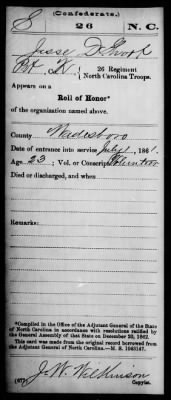 (Confederate.)
S 26 N. C.
Jesse D.
Pvt K, 26 Regiment
North Carolina Troops.
Appears on a
Roll of Honor*
of the organization named above.
County Wadesboro
Date of entrance into service July 1, 1861.
Age 23; Vol. or Conscript Volunteer
Died or discharged, and when
Remarks:
*Compiled in the Office of the Adjutant General of the State
of North Carolina in accordance with resolutions ratified by the
General Assembly of that State on December 20, 1862.
This card was made from the original record borrowed from the
Adjutant General of North Carolina.—M. S. 1043147.
J. W. Wilkinson
Copyist.